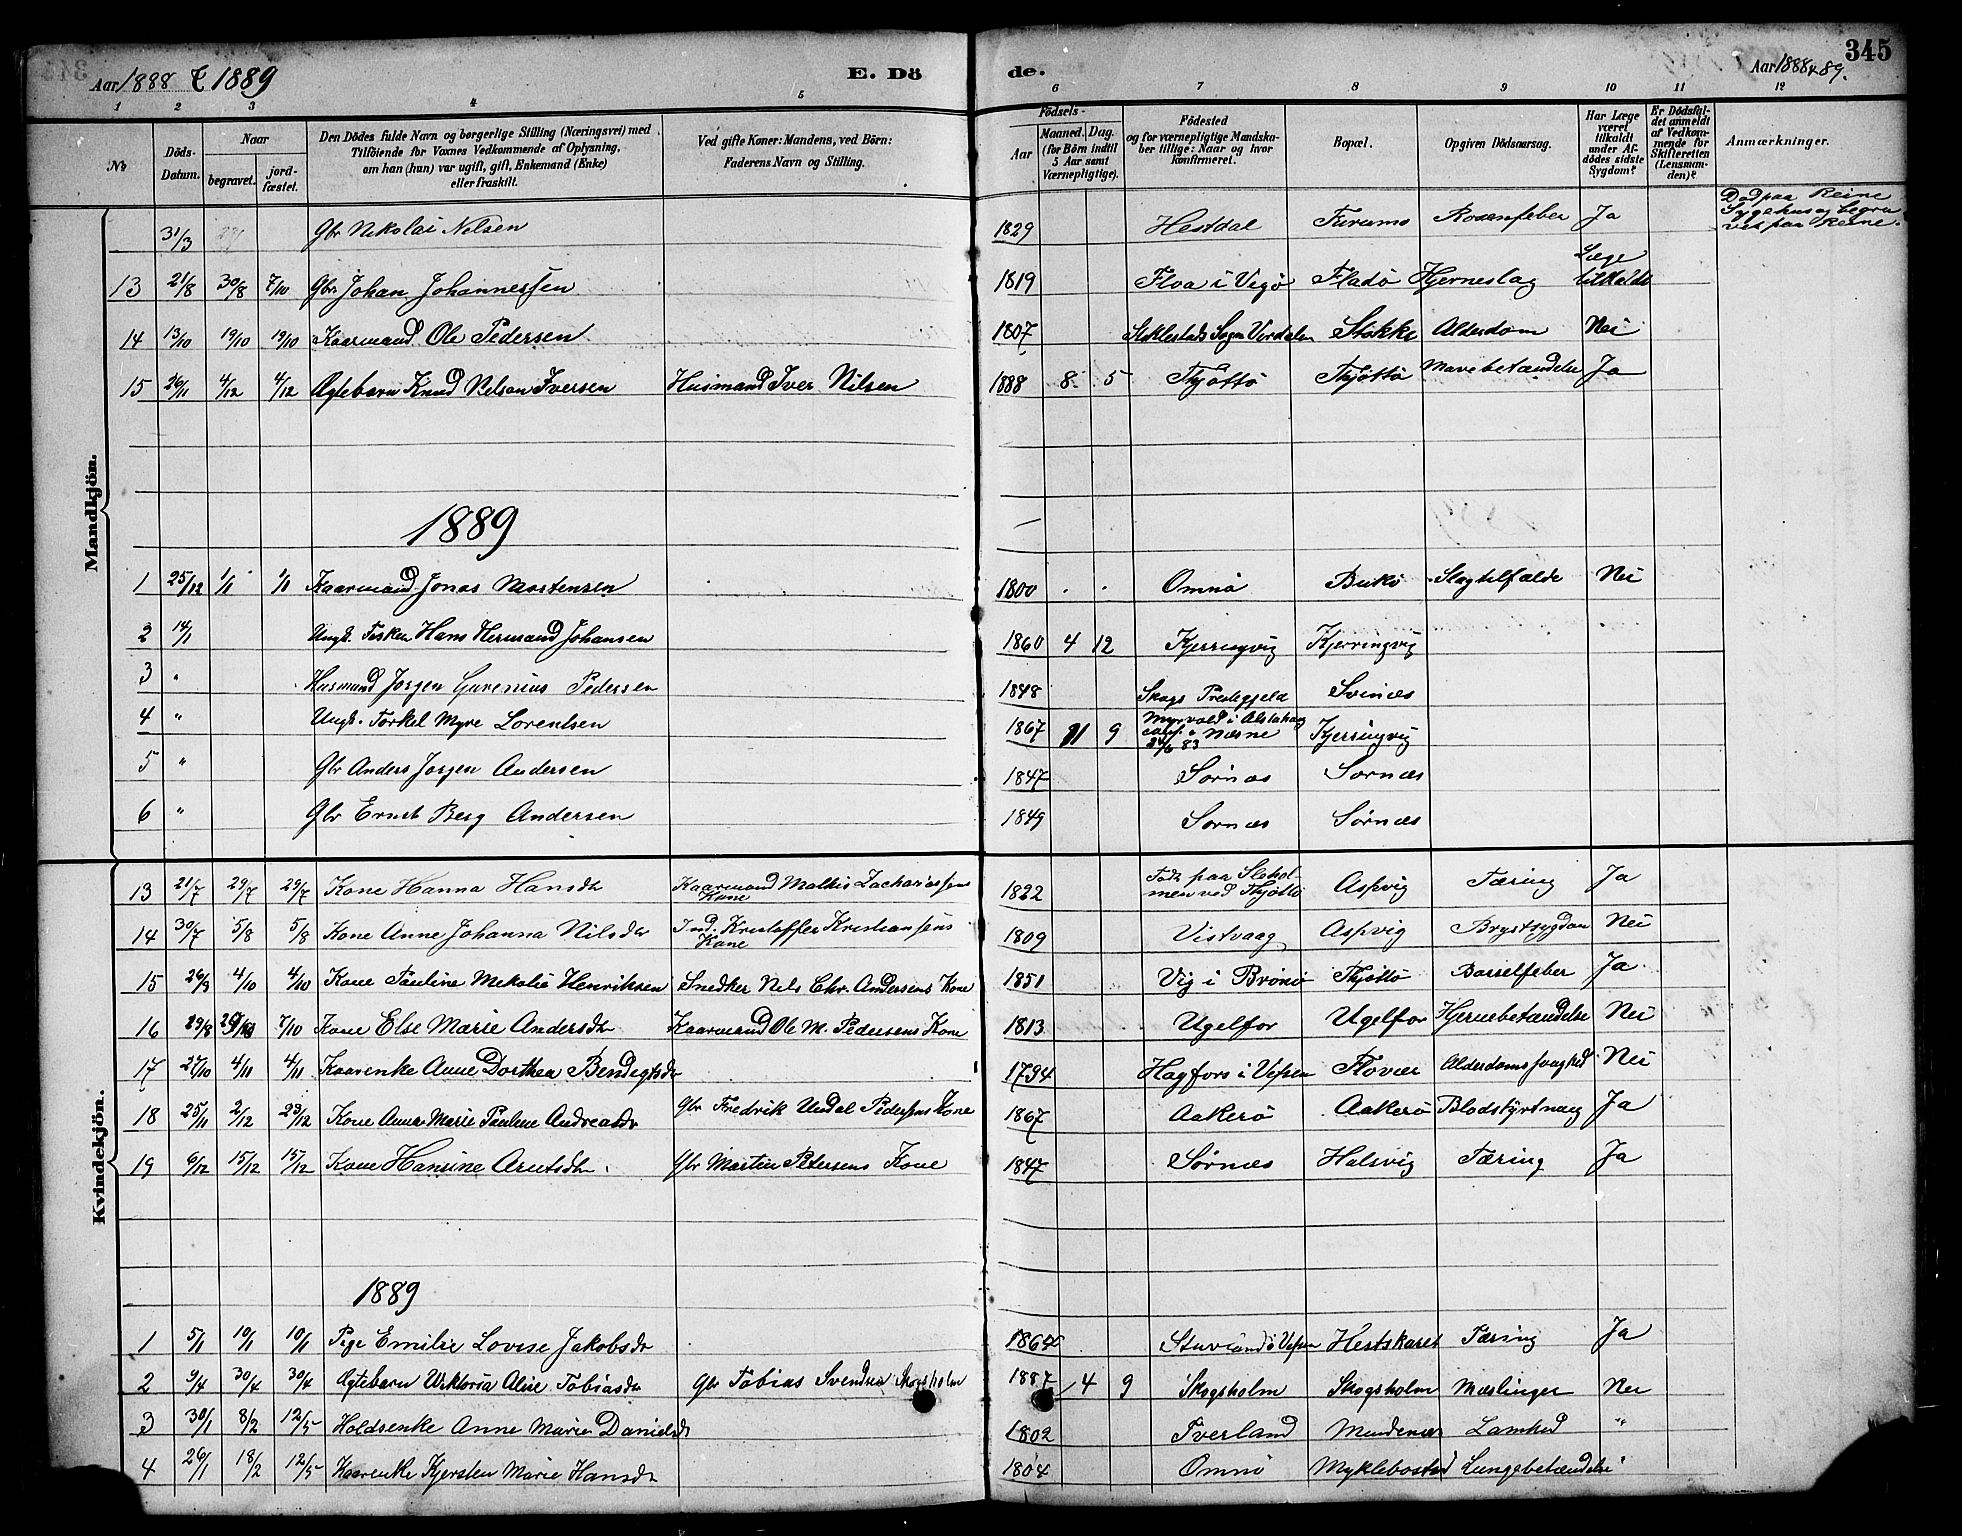 345
Aar 1888 & 1889
E. Dö
de.
Aar 1888 & 89.
1 2 3 4 5 6 7 8 9 10 11 12
No
Döds-
Datum.
Naar
begravet.
jord-
fæstet.
Den Dödes fulde Navn og borgerlige Stilling (Næringsvei) med
Tilföiende for Voxnes Vedkommende af Oplysning,
om han (hun) var ugift, gift, Enkemand (Enke)
eller fraskilt.
Ved gifte Koner: Mandens, ved Börn:
Faderens Navn og Stilling.
Födsels-
Aar
Maaned. Dag.
(for Börn indtil
5 Aar samt
Værnepligtige).
Födested
og for værnepligtige Mandska-
ber tillige: Naar og hvor
konfirmeret.
Bopæl.
Opgiven Dödsaarsag.
Har Læge
været
tilkaldt
under Af-
dödes sidste
Sygdom?
Er Dödsfal-
det anmeldt
af Vedkom-
mende for
Skifteretten
(Lensman-
den)?
Anmærkninger.
Mandkjön.
31/3 Gbr Nikolai Nilsen 1829 Hestdal Furumo Rosenfeber Ja Död paa Reine
Sygehus og begra
vet paa Reine.
13 21/8 30/8 7/10 Gbr Johan Johannessen 1819 Floa i Vegö Fladö Hjerneslag Læge
tilkaldt
14 13/10 19/10 19/10 Kaarmand Ole Pedersen 1807 Stiklestads Sogn Verdalen Stokke Alderdom Nei
15 26/11 4/12 4/12 Ægtebarn Knud Nelson Iversen Husmand Iver Nilsen 1888 8 5 Thjöttö Thjöttö Mavebetændelse Ja
1889
1 25/12 1/1 1/1 Kaarmand Jonas Mortensen 1800 Omnö Bukö Slagtilfælde Nei
2 14/1 Ungk. Fisker Hans Hermand Johansen 1860 4 12 Kjerringvig Kjerringvig
3 " Husmand Jorgen Gurenius Pedersen 1848 Skogs Prestegjeld Svinæs
4 " Ungk. Torkel Myre Lorentsen 1867 11 9 Myrvold i Alstahaug
conf. i Næsne
24/6 83 Kjerringvig
5 " Gbr Anders Jorgen Andersen 1847 Sörnæs Sornæs
6 " Gbr Ernst Berg Andersen 1849 Sornæs Sörnæs
Kvindekjön.
13 21/7 29/7 29/7 Kone Hanna Hansdr Kaarmand Mathis Zachariassens
Kone 1822 Föd paa Slohol-
men ved Thjöttö Aspvig Tæring Ja
14 30/7 5/8 5/8 Kone Anne Johanna Nilsdr Ind. Kristoffer Kristiansens
Kone 1809 Vistvaag Aspvig Brystsygdom Nei
15 26/9 4/10 4/10 Kone Pauline Mekolie Henriksen Snedker Nels Chr. Andersens Kone 1851 Vig i Brönö Thjöttö Barselfeber Ja
16 29/8 7/10 Kone Else Marie Andersdr Kaarmand Ole M. Pedersens Kone 1813 Ugelfor Ugelfor Hjernebetændelse Nei
17 27/10 4/11 4/11 Kaarenke Anne Dorthea Bendigtsdr 1794 Hagfors i Vefsen Flovær Alderdomssvaghed Nei
18 25/11 2/12 23/12 Kone Anna Marie Pauline Andreasdr Gbr Fredrik Undal Pedersens Kone 1867 Aakerö Aakerö Blodstyrtning Ja
19 6/12 15/12 15/12 Kone Hansine Arntsdr Gbr Martin Petersens Kone 1847 Sörnæs Halsvig Tæring Ja
1889
1 5/1 10/1 10/1 Pige Emilie Lovise Jakobsdr 1864 i Vefsen Hestskaret Tæring Ja
2 9/4 30/4 30/4 Ægtebarn Viktoria Aline Tobiasdr Gbr Tobias Svendsen Skogsholm 1887 4 9 Skogsholm Skogsholm Mæslinger Nei
3 30/1 8/2 12/5 Holdsenke Anne Marie Danielsdr 1802 Tverland Mindenæs Lamhed "
4 26/1 18/2 12/5 Kaarenke Kjersten Marie Hansdr 1804 Omnö Myklebostad Lungebetændelse "